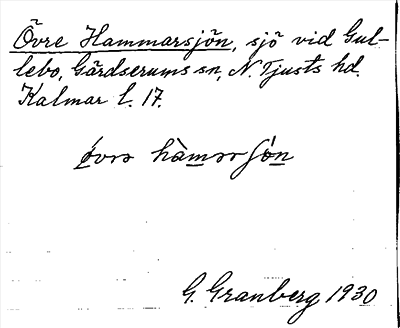 Övre Hammarsjön, sjö vid Gul-
lebo, Gärdserums sn, N. Tjusts hd.
Kalmar l. 17.
G. Granberg 1930